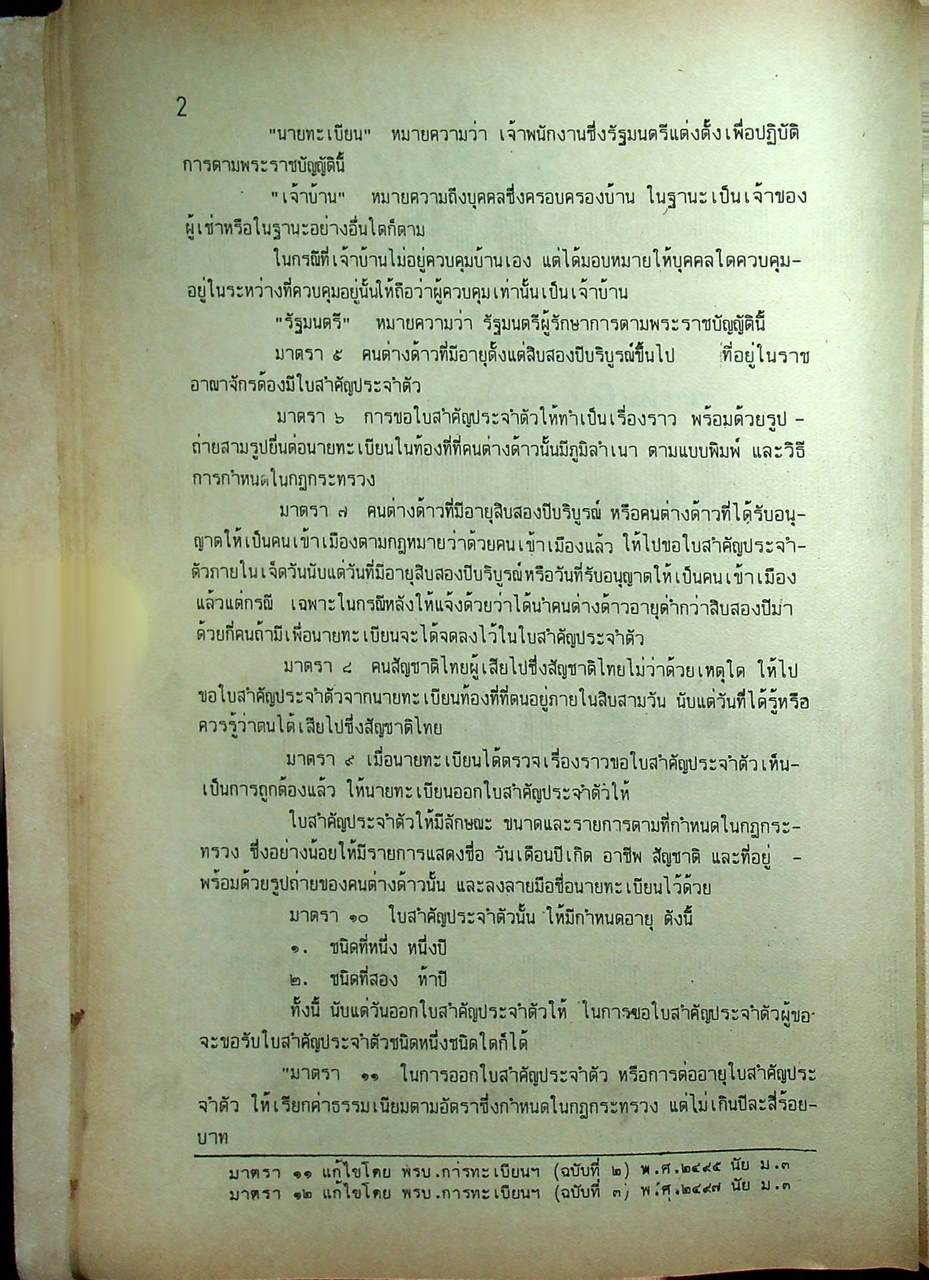 2
"นายทะเบียน" หมายความว่า เจ้าพนักงานซึ่งรัฐมนตรีแต่งตั้งเพื่อปฏิบัติ
การตามพระราชบัญญัตินี้
"เจ้าบ้าน" หมายความถึงบุคคลซึ่งครอบครองบ้าน ในฐานะเป็นเจ้าของ
ผู้เช่าหรือในฐานะอย่างอื่นใดก็ตาม
ในกรณีที่เจ้าบ้านไม่อยู่ควบคุมบ้านเอง แต่ได้มอบหมายให้บุคคลใดควบคุม-
อยู่ในระหว่างที่ควบคุมอยู่นั้นให้ถือว่าผู้ควบคุมเท่านั้นเป็นเจ้าบ้าน
"รัฐมนตรี" หมายความว่า รัฐมนตรีผู้รักษาการตามพระราชบัญญัตินี้
มาตรา ๕ คนต่างด้าวที่มีอายุตั้งแต่สิบสองปีบริบูรณ์ขึ้นไป ที่อยู่ในราช
อาณาจักรต้องมีใบสำคัญประจำตัว
มาตรา ๖ การขอใบสำคัญประจำตัวให้ทำเป็นเรื่องราว พร้อมด้วยรูป -
ถ่ายสามรูปยื่นต่อนายทะเบียนในท้องที่ที่คนต่างด้าวนั้นมีภูมิลำเนา ตามแบบพิมพ์ และวิธี
การกำหนดในกฎกระทรวง
มาตรา ๗ คนต่างด้าวที่มีอายุสิบสองปีบริบูรณ์ หรือคนต่างด้าวที่ได้รับอนุ-
ญาตให้เป็นคนเข้าเมืองตามกฎหมายว่าด้วยคนเข้าเมืองแล้ว ให้ไปขอใบสำคัญประจำ-
ตัวภายในเจ็ดวันนับแต่วันที่มีอายุสิบสองปีบริบูรณ์หรือวันที่รับอนุญาตให้เป็นคนเข้าเมือง
แล้วแต่กรณี เฉพาะในกรณีหลังให้แจ้งด้วยว่าได้นำคนต่างด้าวอายุต่ำกว่าสิบสองปีมา
ด้วยกี่คนถ้ามีเพื่อนายทะเบียนจะได้จดลงไว้ในใบสำคัญประจำตัว
มาตรา ๘ คนสัญชาติไทยผู้เสียไปซึ่งสัญชาติไทยไม่ว่าด้วยเหตุใด ให้ไป
ขอใบสำคัญประจำตัวจากนายทะเบียนท้องที่ที่ตนอยู่ภายในสิบสามวัน นับแต่วันที่ได้รู้หรือ
ควรรู้ว่าตนได้เสียไปซึ่งสัญชาติไทย
มาตรา ๙ เมื่อนายทะเบียนได้ตรวจเรื่องราวขอใบสำคัญประจำตัวเห็น-
เป็นการถูกต้องแล้ว ให้นายทะเบียนออกใบสำคัญประจำตัวให้
ใบสำคัญประจำตัวให้มีลักษณะ ขนาดและรายการตามที่กำหนดในกฎกระ-
ทรวง ซึ่งอย่างน้อยให้มีรายการแสดงชื่อ วันเดือนปีเกิด อาชีพ สัญชาติ และที่อยู่ -
พร้อมด้วยรูปถ่ายของคนต่างด้าวนั้น และลงลายมือชื่อนายทะเบียนไว้ด้วย
มาตรา ๑๐ ใบสำคัญประจำตัวนั้น ให้มีกำหนดอายุ ดังนี้
๑. ชนิดที่หนึ่ง หนึ่งปี
๒. ชนิดที่สอง ห้าปี
ทั้งนี้ นับแต่วันออกใบสำคัญประจำตัวให้ ในการขอใบสำคัญประจำตัวผู้ขอ
จะขอรับใบสำคัญประจำตัวชนิดหนึ่งชนิดใดก็ได้
"มาตรา ๑๑ ในการออกใบสำคัญประจำตัว หรือการต่ออายุใบสำคัญประ
จำตัว ให้เรียกค่าธรรมเนียมตามอัตราซึ่งกำหนดในกฎกระทรวง แต่ไม่เกินปีละสี่ร้อย-
บาท
มาตรา ๑๑ แก้ไขโดย พรบ.การทะเบียนฯ (ฉบับที่ ๒) พ.ศ.๒๔๙๕ นัย ม.๓
มาตรา ๑๒ แก้ไขโดย พรบ.การทะเบียนฯ (ฉบับที่ ๓) พ.ศ.๒๔๙๗ นัย ม.๓